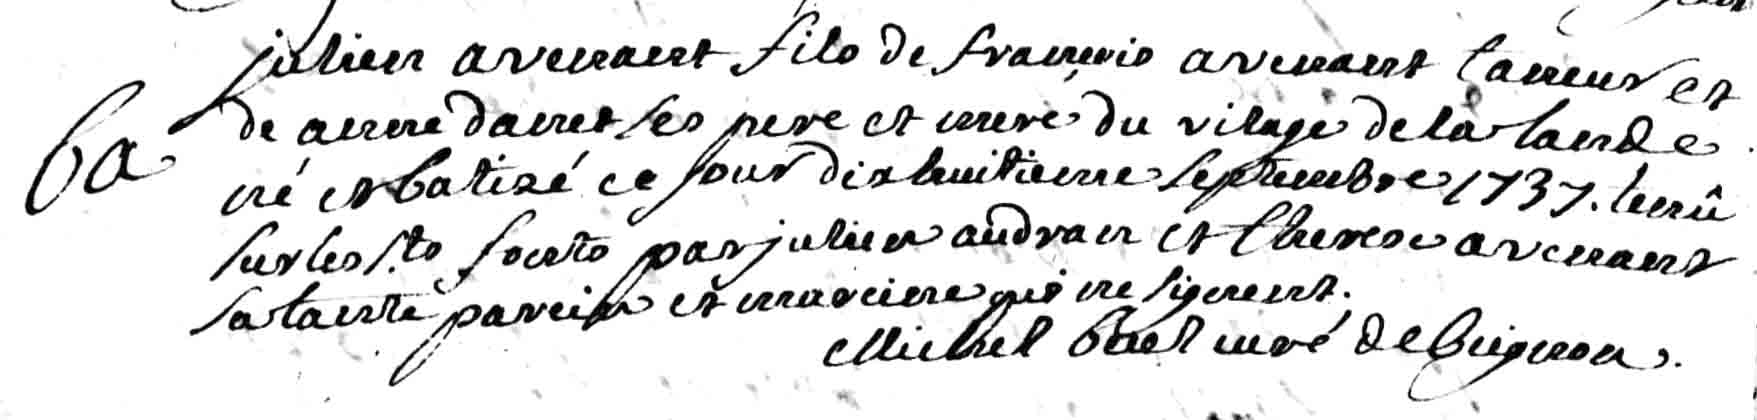 julien avenant fils de francois avenant tanneur et
Ba de anne danet ses pere et mere du vilage de la lande
né et batizé ce jour dix huitieme septembre 1737. tenû
sur les sts fonts par julien audrain et therese avenant
sa tante parein et mareine qui ne signent.
Michel curé de bignon.